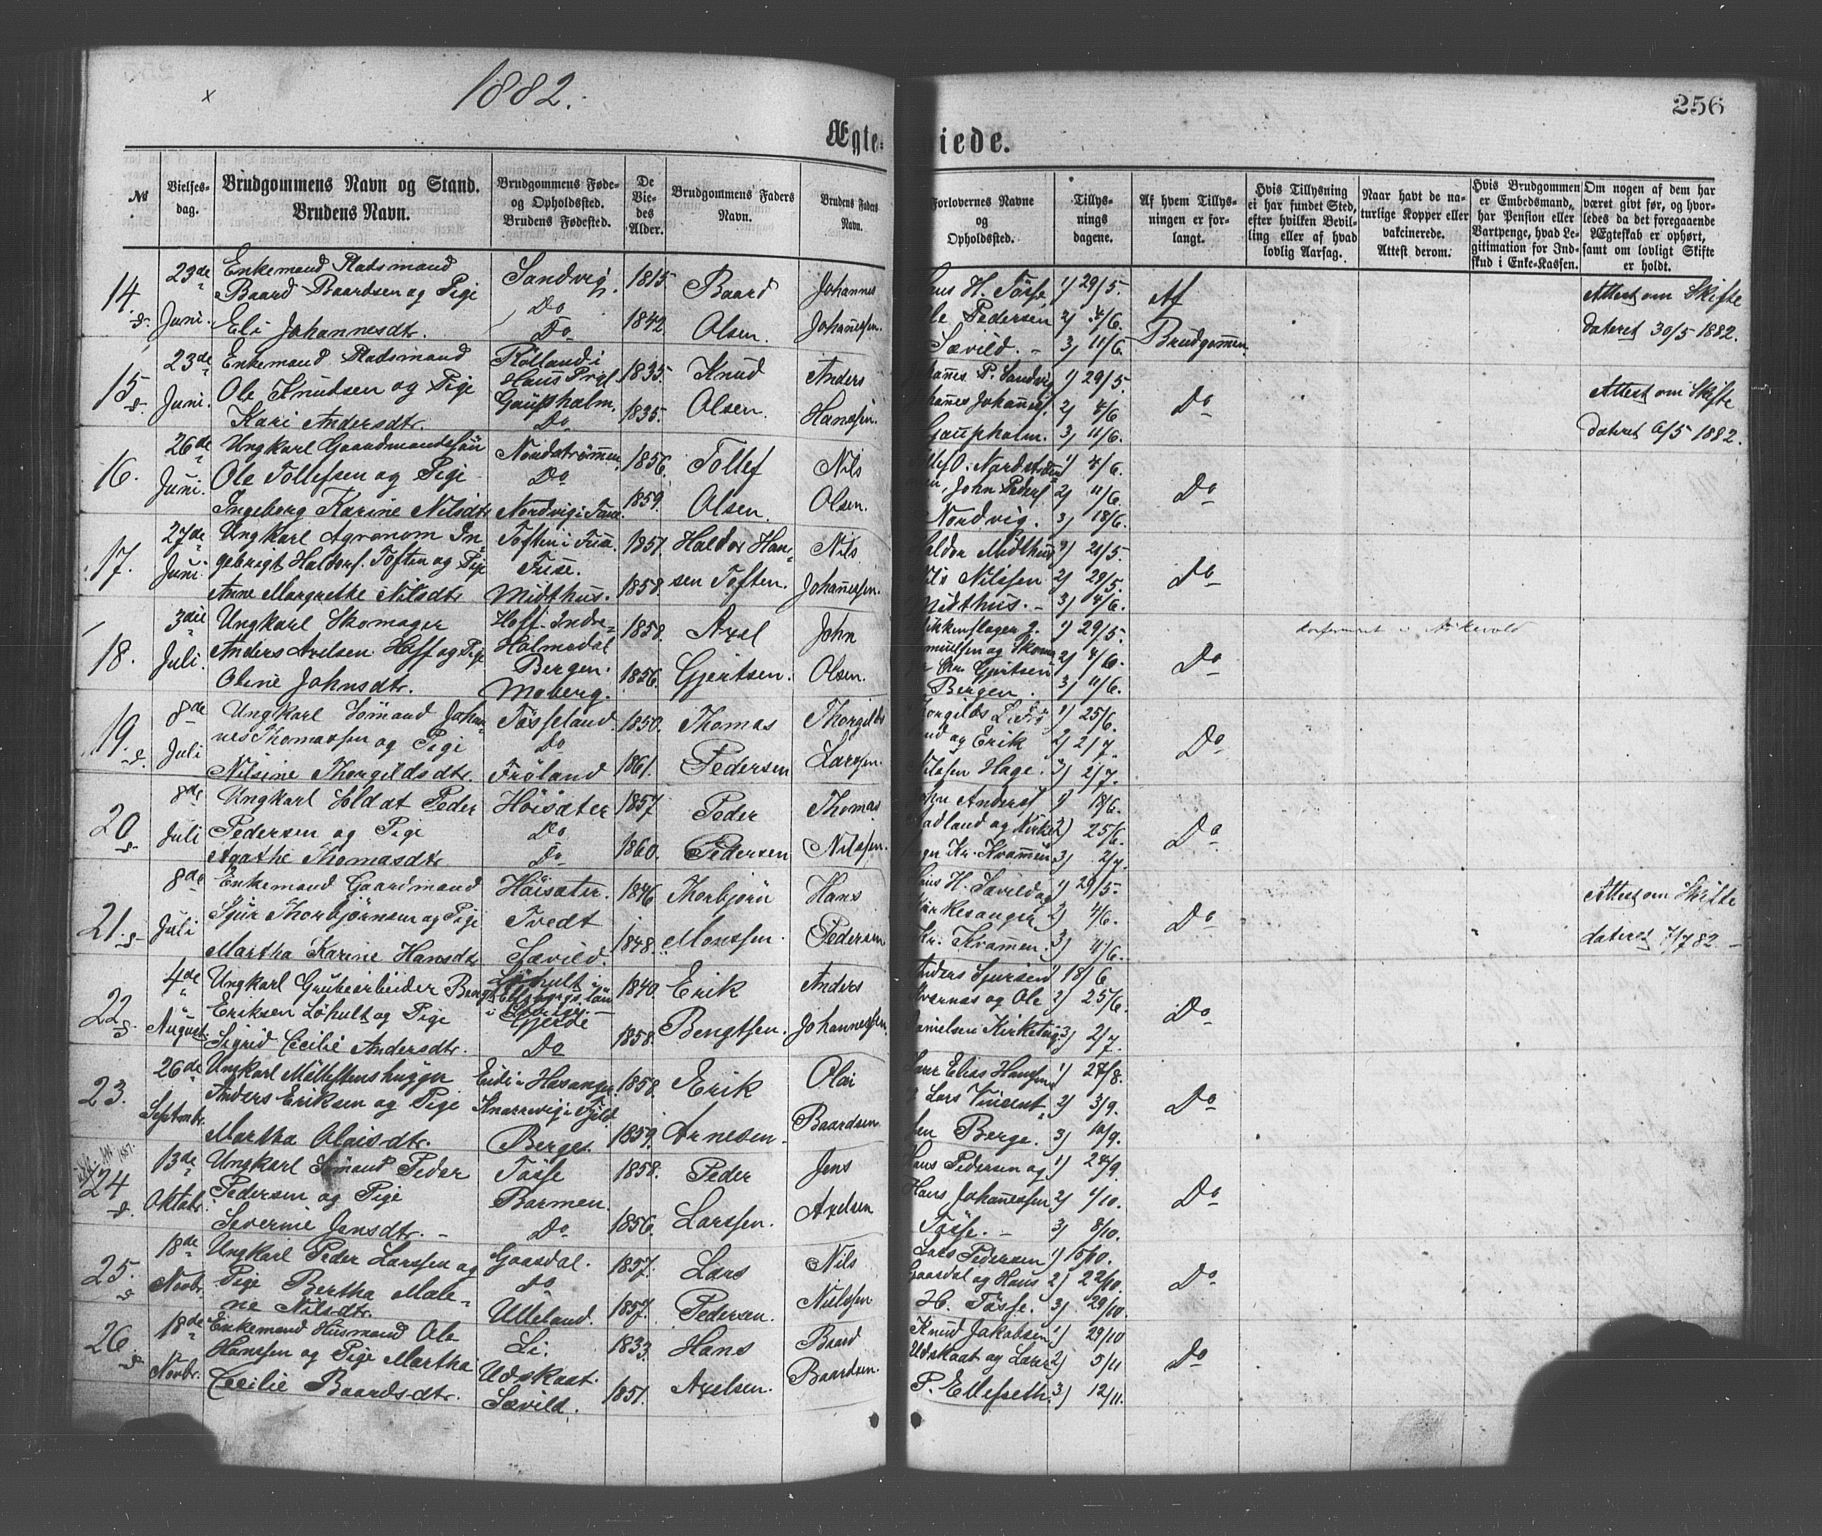 1882.
256
Ægte= iede.
№
Vielses-
dag.
Brudgommens Navn og Stand.
Brudens Navn.
Brudgommens Føde-
og Opholdssted.
Brudens Fødested.
De
Vie-
des
Alder.
Brudgommens Faders
Navn.
Brudens Faders
Navn.
Forlovernes Navne
og
Opholdssted.
Tillys-
nings
dagene.
Af hvem Tillys-
ningen er for-
langt.
Hvis Tillysning
ei har fundet Sted,
efter hvilken Bevil-
ling eller af hvad
lovlig Aarsag.
Naar havt de na-
turlige Kopper eller
vakcinerede.
Attest derom.
Hvis Brudgommen
er Embedsmand,
har Pension eller
Vartpenge, hvad Le-
gitimation for Ind-
skud i Enke-Kassen.
Om nogen af dem har
været givt før, og hvor-
ledes da det foregaaende
Ægteskab er ophørt,
samt om lovligt Skifte
er holdt.
14.
23de Juni.
Enkemand Pladsmand
Baard Baardsen og Pige
Eli Johannesdtr.
Sandvig
Do
Do
1815
1842.
Baard
Olsen.
Johannes
Johannessen.
H. Tøsse
Pedersen
Sævild. -
1) 29/5.
2) 4/6.
3) 11/6.
Af
Brudgommen
Attest om Skifte
dateret 30/5 1882.
15.
23de Juni.
Enkemand Pladsmand
Ole Knudsen og Pige
Kari Andersdtr.
Haus Prgl.
Gaupholm.
Do
1835.
1835.
Knud
Olsen.
Anders
Hanssen.
P. Sandvig
Gaupholm.
1) 29/5.
2) 4/6.
3) 11/6.
Do
Attest om Skifte
dateret 6/5 1882.
16.
26de Juni.
Ungkarl Gaardmandssøn
Ole Tollefsen og Pige
Ingeborg Karine Nilsdtr
Nordstrømmen
Do
Nordvig i
1856.
1859.
Tollef
Olsen.
Nils
Olsen.
John Peders
Nordvig.
1) 4/6.
2) 11/6.
3) 18/6.
Do
17.
27de Juni.
Ungkarl Agronom In-
gebrigt Haldors. Toften og Pige
Anne Margrethe Nilsdtr
Toften i
Fuse.
Midthus.
1857.
1858.
Haldor Han-
sen Toften.
Nils
Johannessen.
Midthus
Nilssen
Midthus. -
1) 21/5.
2) 29/5.
3) 4/6.
Do
18.
3die Juli.
Ungkarl Skomager
Anders Axelsen Hoff og Pige
Oline Johnsdtr.
Hoff. Indre
Holmedal
Bergen.
Moberg.
1858.
1856.
Axel
Gjertsen.
John
Olsen.
Gjertsen
Bergen.
1) 29/5.
2) 4/6.
3) 11/6.
Do
19.
8de Juli
Ungkarl Sømand Johan-
nes Thomassen og Pige
Nilsine Thorgildsdtr.
Tøsseland
Do
Frøland
1850.
1861.
Thomas
Pedersen
Thorgilds
Larssen.
og Erik
Nilssen Hage.
1) 25/6.
2) 2/7.
3) 2/7.
Do
20
8de Juli
Ungkarl Soldat Peder
Pedersen og Pige
Agathe Thomasdtr.
Høisæter
Do
Do
1857.
1860.
Peder
Pedersen
Thomas
Nilssen.
Anders
Kr. Kvammen
1) 18/6.
2) 25/6.
3) 2/7.
Do
21.
8de Juli
Enkemand Gaardmand
Sjur Thorbjørnsen og Pige
Martha Karine Hansdtr
Høisæter.
Tvedt
Sævild.
1846
1848.
Thorbjørn
Monssen.
Hans
Pedersen
H. Sævild og
Kr. Kvammen.
1) 29/5.
2) 4/6.
3) 11/6.
Do
Attest om Skifte
dateret 7/7 82 -
22.
4de August.
Ungkarl Grubearbeider Bengt
Eriksen Løhult og Pige
Sigrid Cecilie Andersdtr.
Løhult i
i Sverige.
Gjerde
Do
1840.
1858.
Erik
Bengtsen.
Anders
Johannessen.
Anders Sjursen
og Ole
Danielsen
1) 18/6
2) 25/6.
3) 2/7.
Do
23.
26de Septmbr.
Ungkarl
Anders Eriksen og Pige
Martha Olaisdtr.
Berge.
1858.
1859.
Erik
Arnesen.
Olai
Baardsen.
Elias Hanssen
Lars Vincent-
sen Berge.
1) 27/8.
2) 3/9.
3) 10/9.
Do
24
13de Oktobr.
Ungkarl Sømand Peder
Pedersen og Pige
Severine Jensdtr. -
Tøsse
Barmen.
Do
1858.
1856.
Peder
Larssen.
Jens
Axelsen
Hans Pedersen og
Hans Johannessen
Tøsse. -
1) 24/9.
2) 1/10.
3) 8/10.
Do
25.
18de Novbr.
Ungkarl Peder Larssen og
Pige Bertha Male-
ne Nilsdtr.
Gaasdal.
Do
Ulleland.
1857.
1857.
Lars
Pedersen.
Nils
Nielssen
Lars Pedersen
Gaasdal og Hans
H. Tøsse.
1) 15/10.
2) 22/10.
3) 29/10.
Do
26.
18de Novbr.
Enkemand Husmand Ole
Hanssen og Pige Martha
Cecilie Baardsdtr.
Li.
Udskaat.
Sævild.
1833.
1851.
Hans
Axelsen.
Baard
Baardsen.
Knud Jakobsen
Udskaat og
P. Ellefseth.
1) 29/10
2) 5/11
3) 12/11.
Do